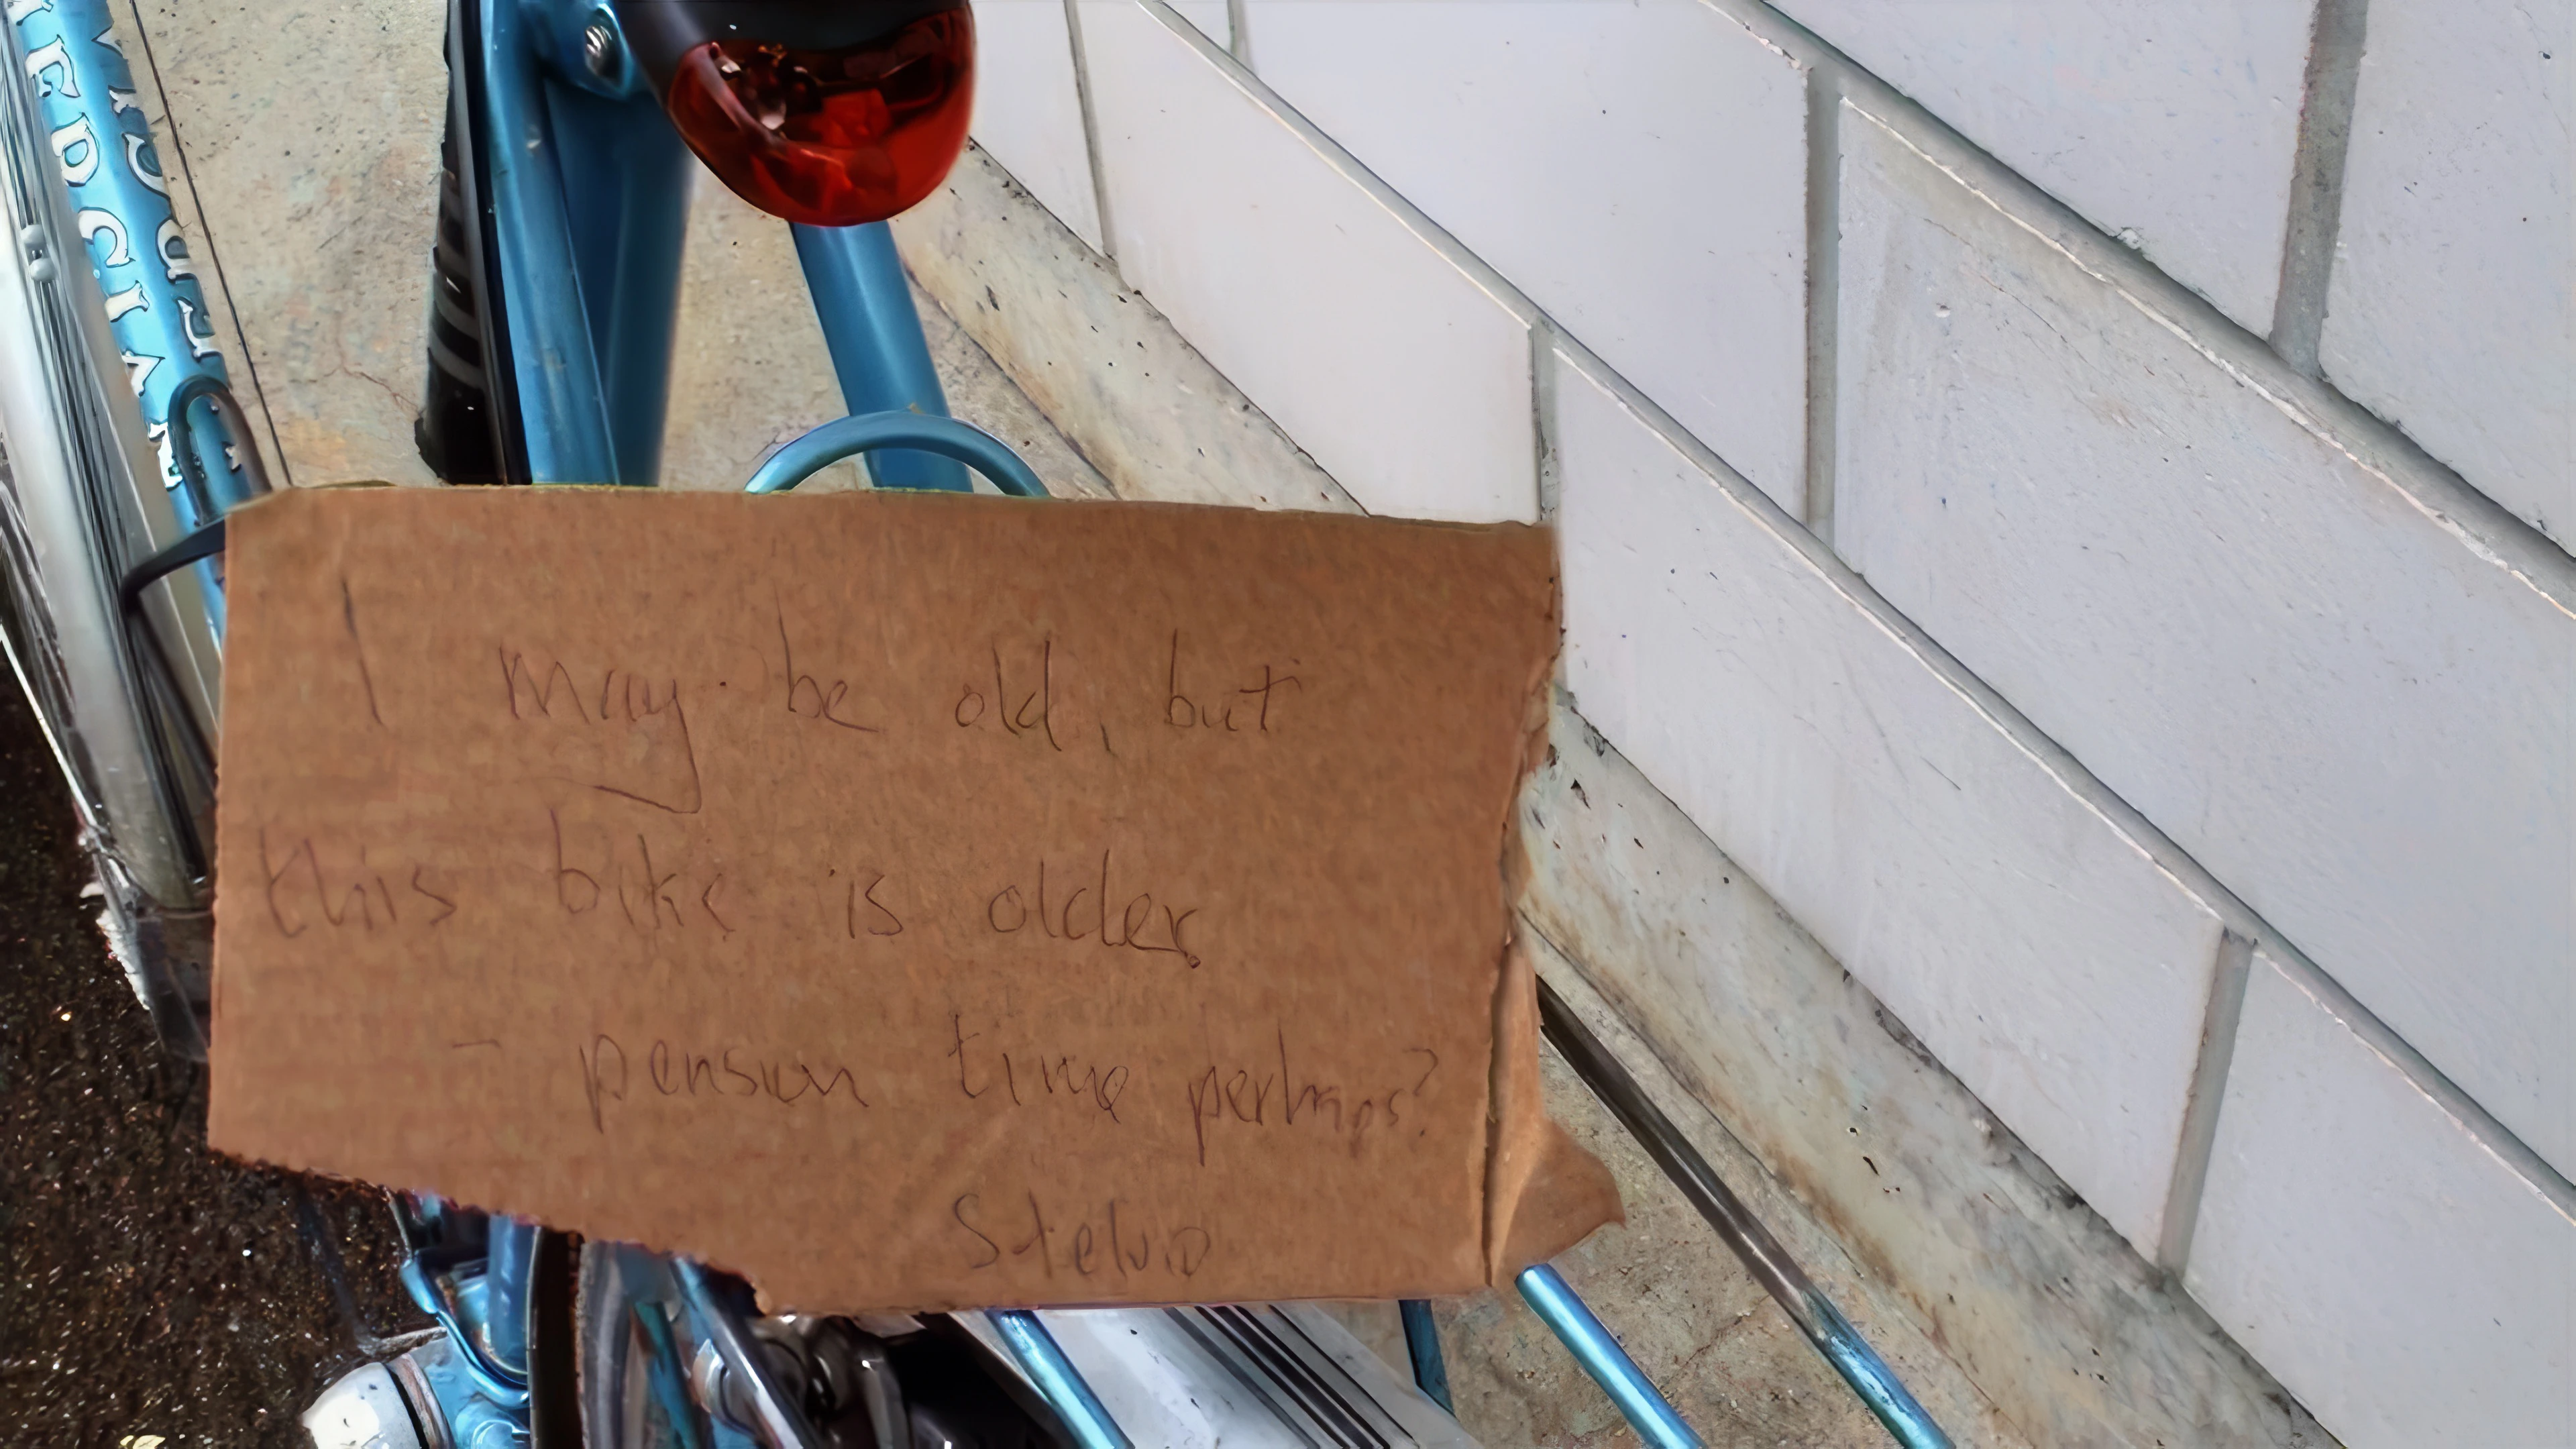 I may be old, but
this bike is older.
- pension time perhaps?
Stelvio